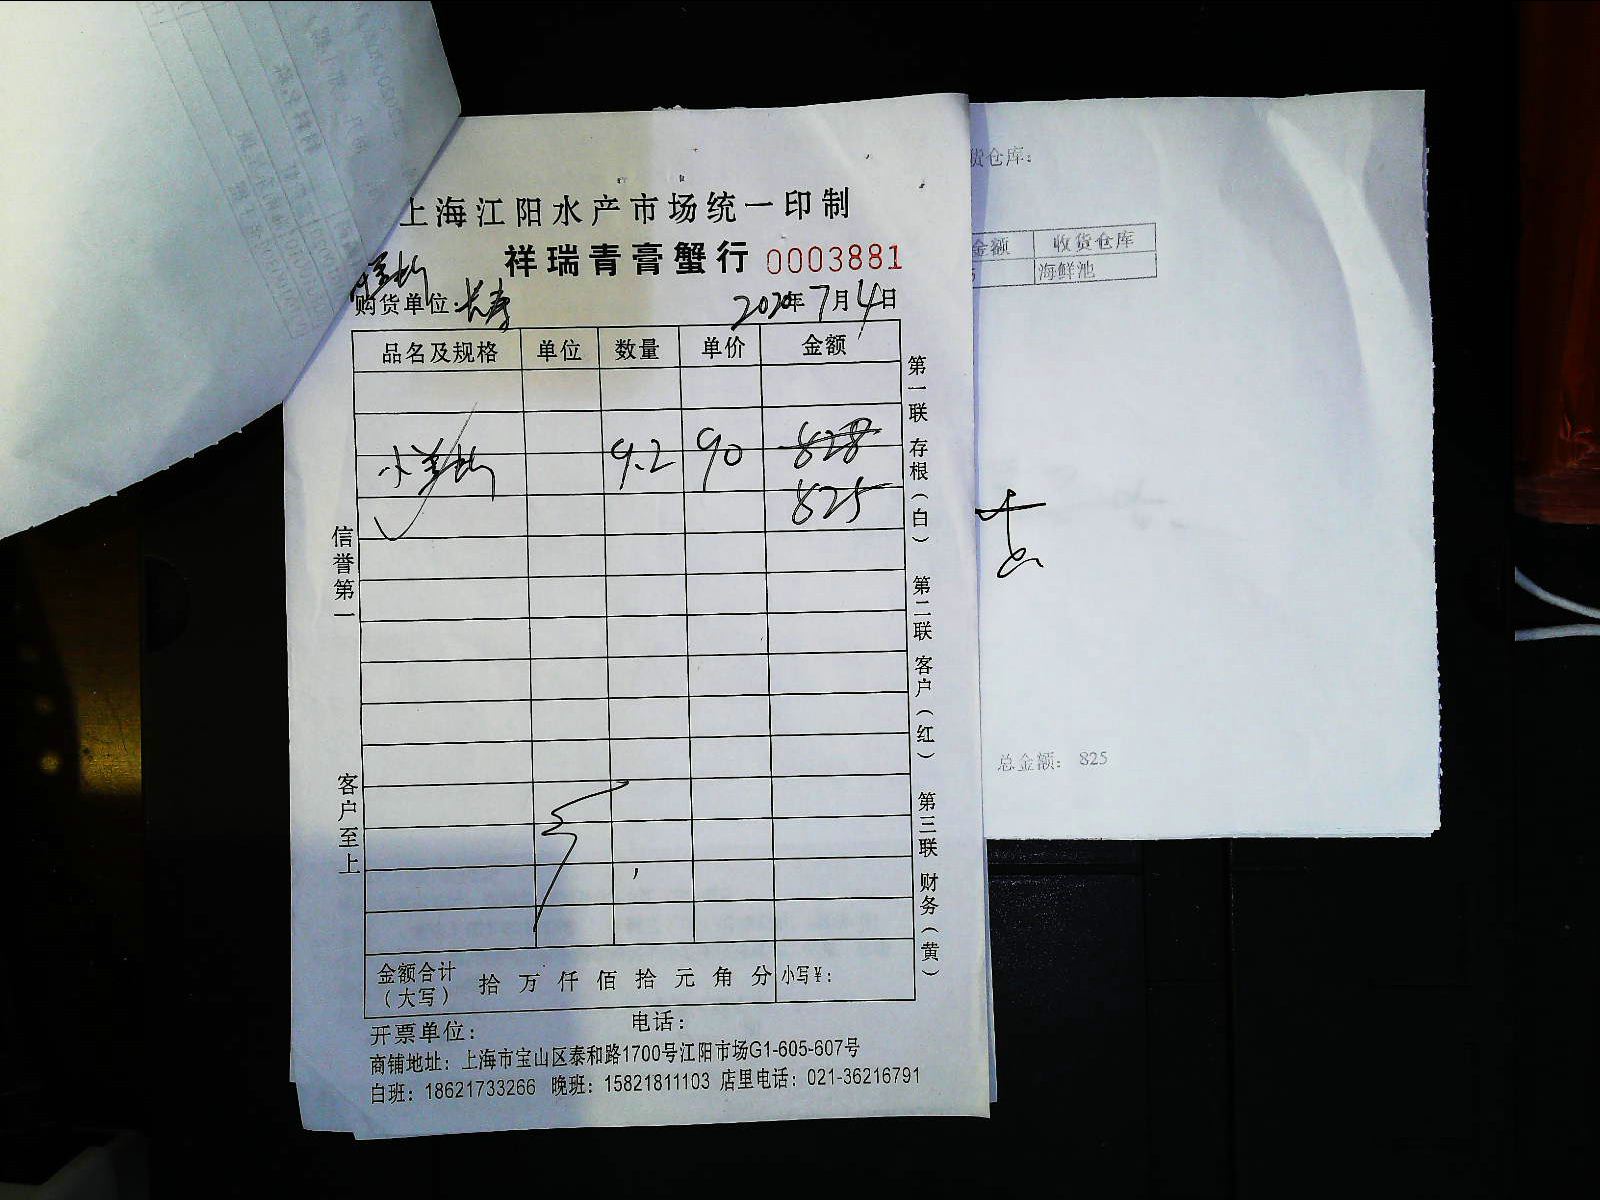 上海江阳水产市场统一印制
祥瑞青膏蟹行 0003881
购货单位: 长寿 2020年7月4日
品名及规格 单位 数量 单价 金额
9.2 90 828
825
信誉第一
客户至上
第一联 存根(白) 第二联 客户(红) 第三联 财务(黄)
金额合计(大写) 拾 万 仟 佰 拾 元 角 分 小写¥:
开票单位: 电话:
商铺地址: 上海市宝山区泰和路1700号江阳市场G1-605-607号
白班: 18621733266 晚班: 15821811103 店里电话: 021-36216791
货仓库:
金额 收货仓库
海鲜池
总金额: 825